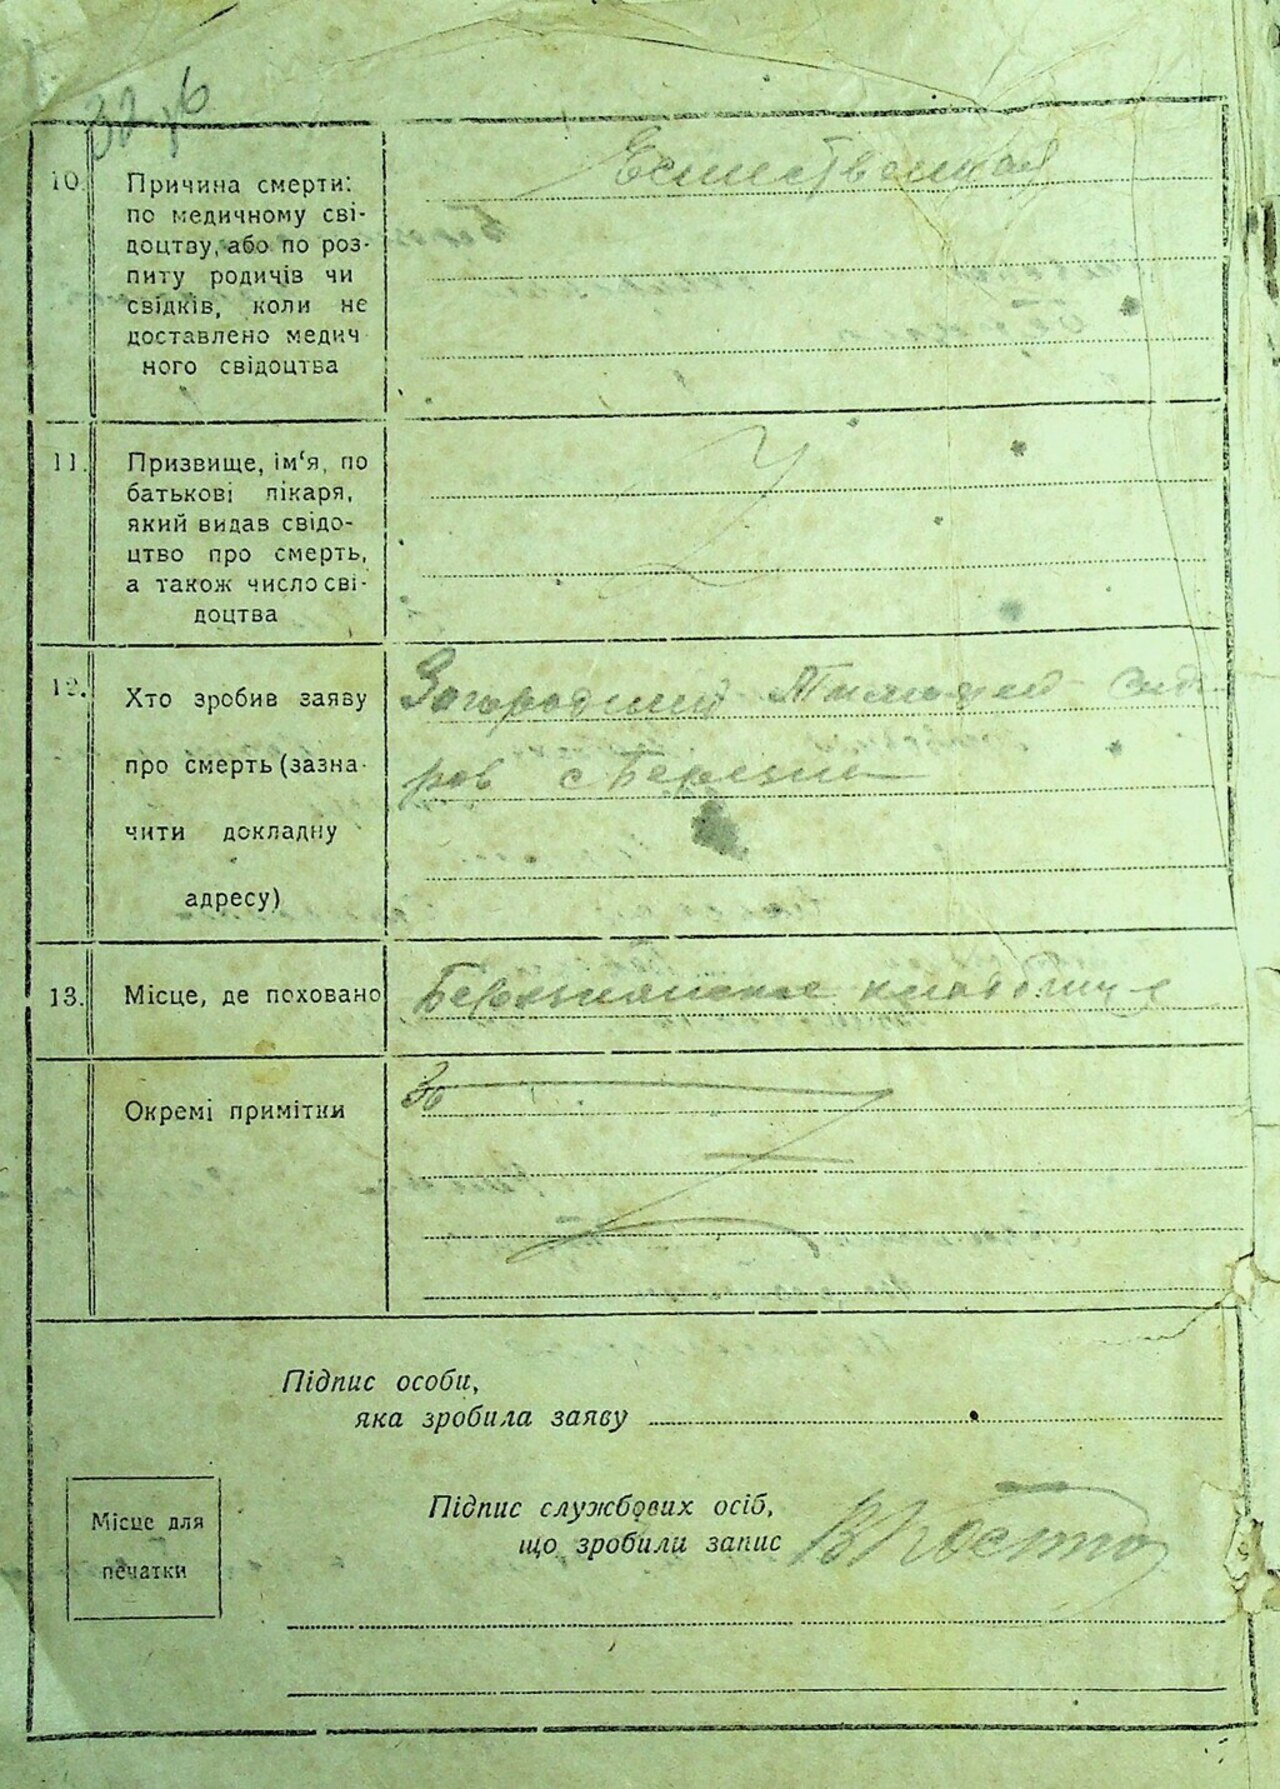 10.
Причина смерти:
по медичному сві-
доцтву, або по роз-
питу родичів чи
свідків, коли не
доставлено медич
ного свідоцтва
Естественная
11.
Призвище, ім‘я, по
батькові лікаря,
який видав свідо-
цтво про смерть,
а також число сві-
доцтва
12.
Хто зробив заяву
про смерть (зазна-
чити докладну
адресу)
Загородний
13.
Місце, де поховано
кладбище
Окремі примітки
Підпис особи,
яка зробила заяву
Підпис службових осіб,
що зробили запис
Місце для
печатки